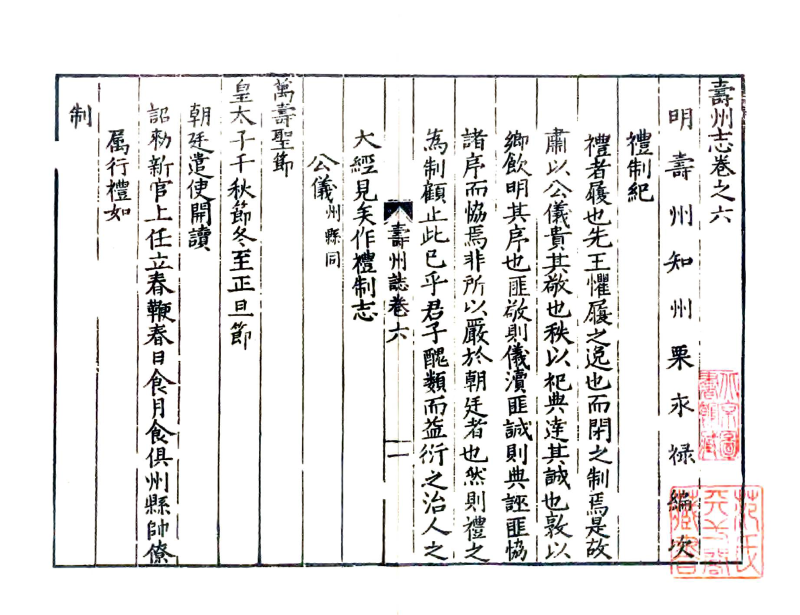 壽州志卷之六
明壽州知州栗永祿編次
禮制紀
禮者履也先王懼履之逸也而閉之制焉是故
肅以公儀貴其敬也秩以祀典達其誠也敦以
鄉飲明其序也匪敬則儀瀆匪誠則典誣匪協
諸序而恊焉非所以嚴於朝廷者也然則禮之
為制顧止此已乎君子醜類而益衍之治人之
大經見矣作禮制志
壽州誌卷六
一
公儀州縣同
萬壽聖節
皇太子千秋節冬至正旦節
朝廷遣使開讀
詔勑新官上任立春鞭春日食月食俱州縣帥僚
属行禮如
制